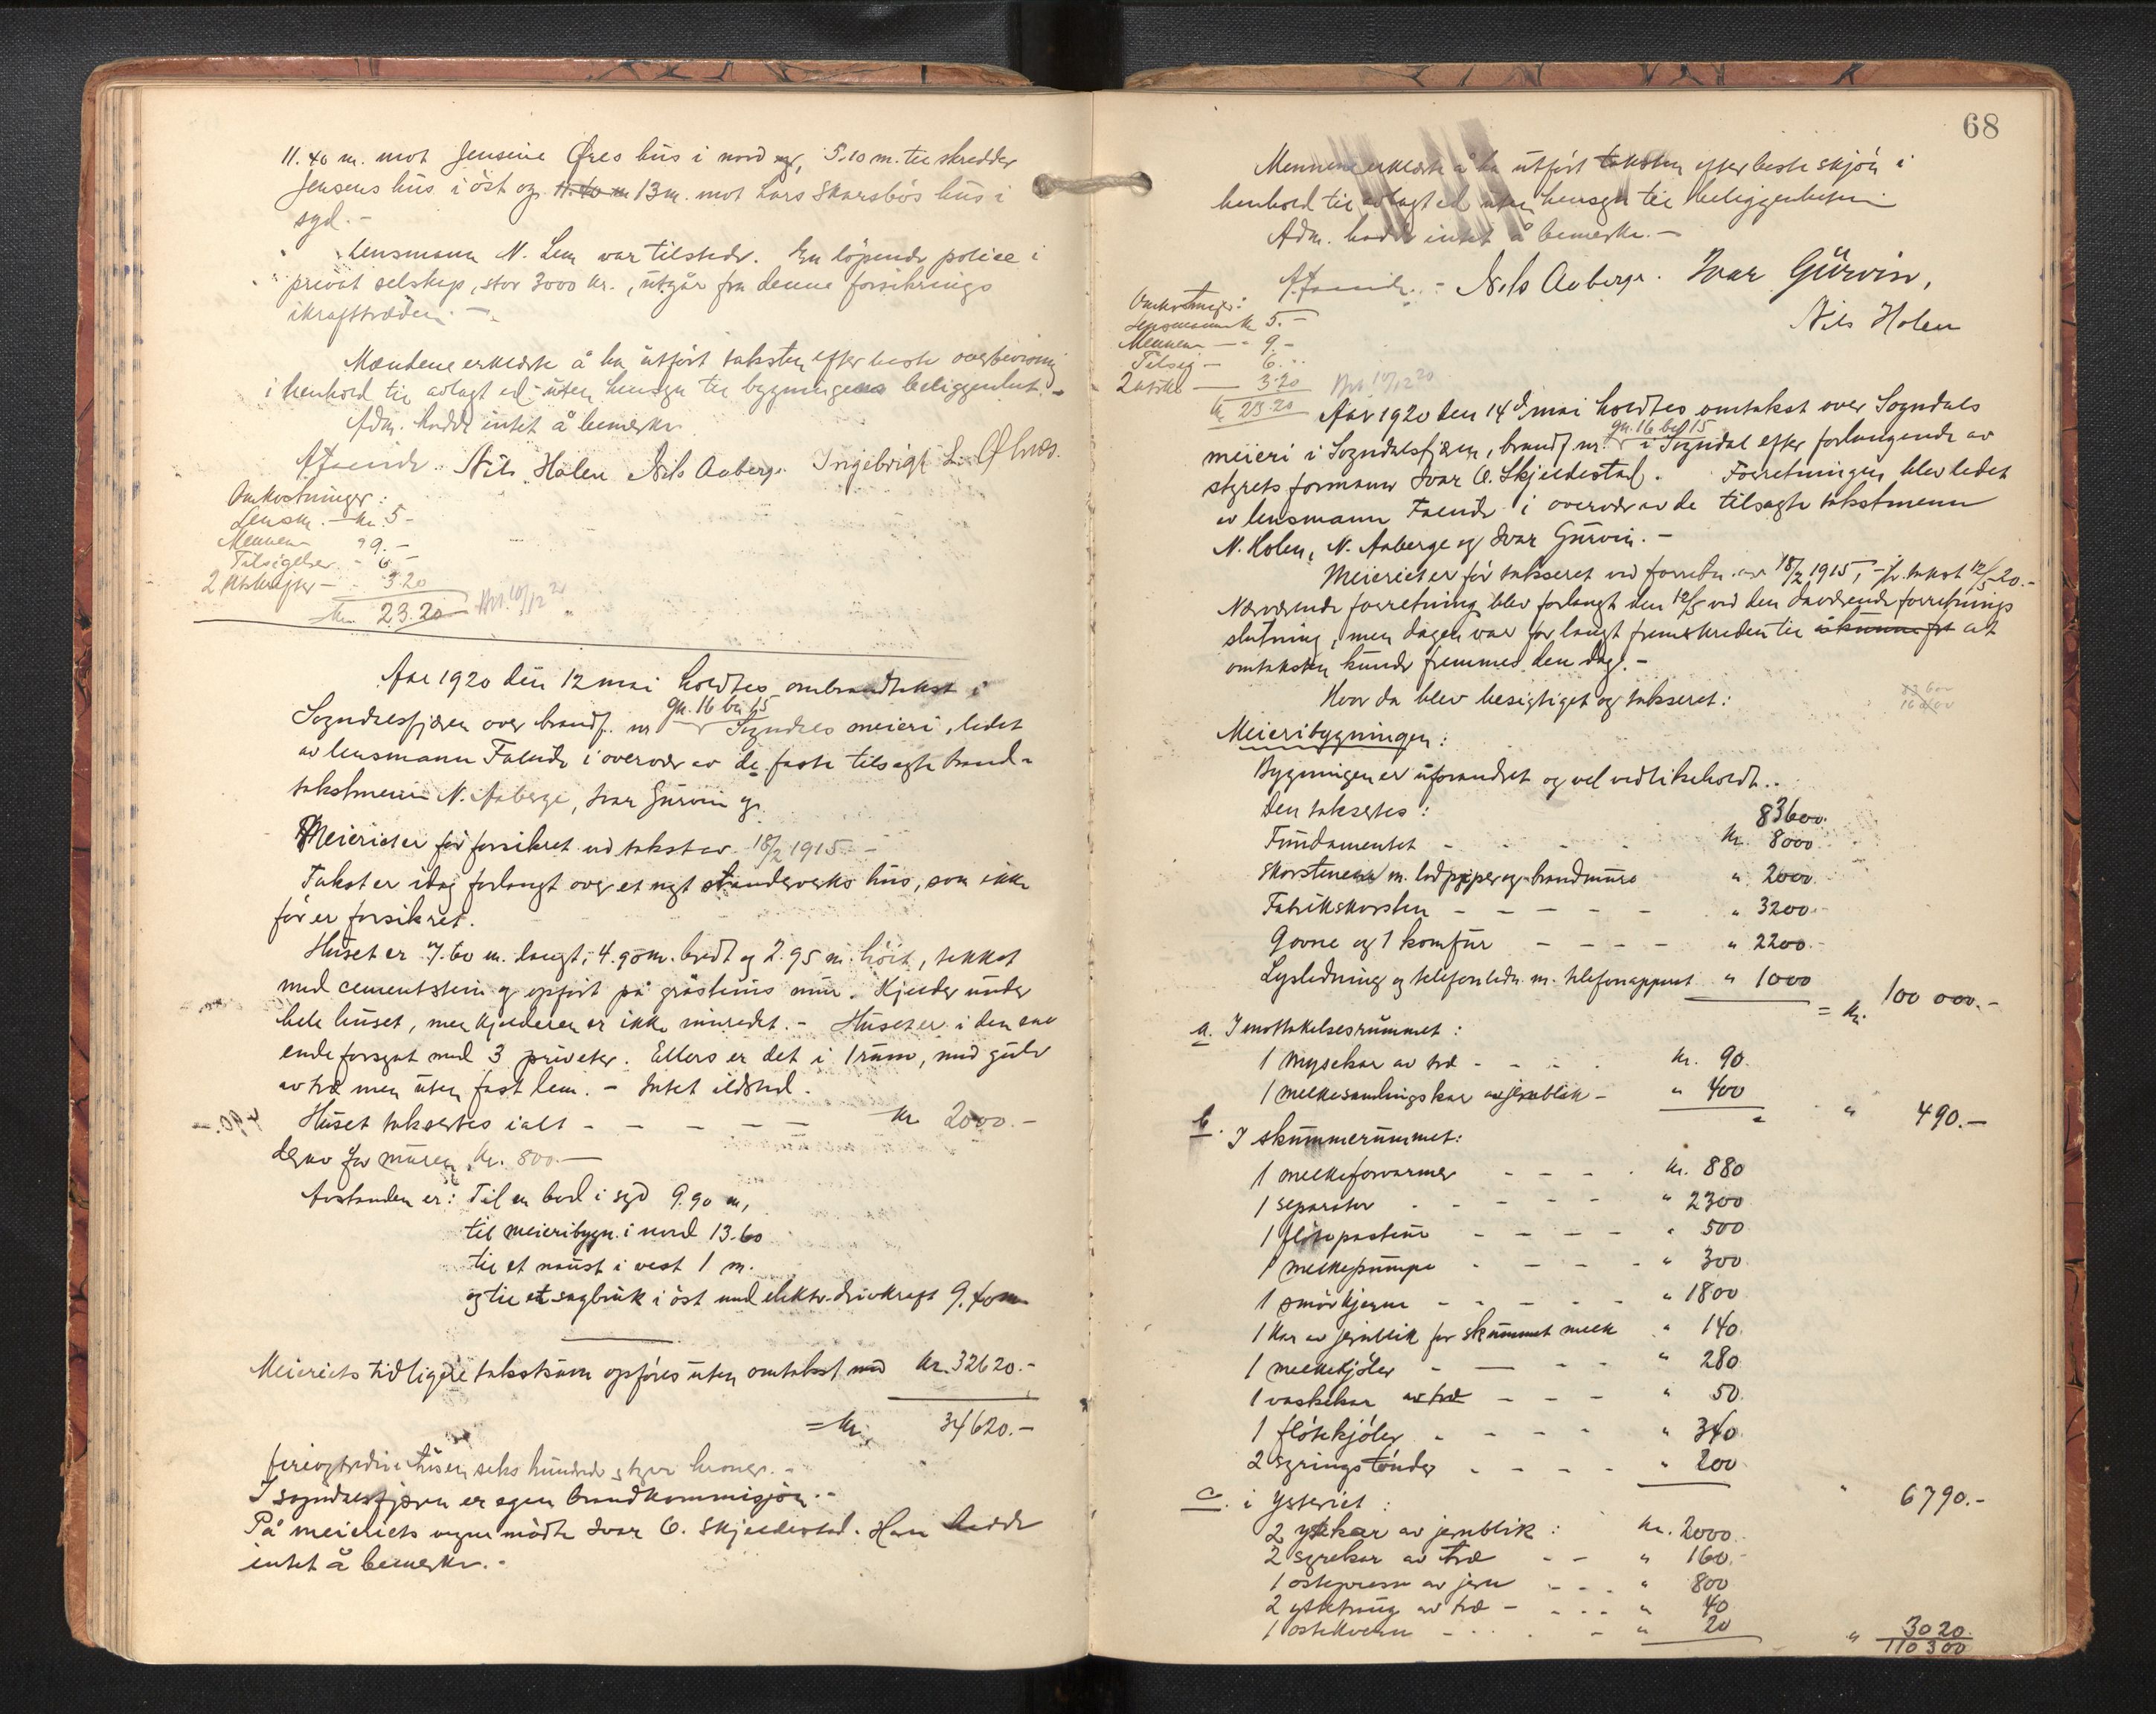 11.40 m. mot Jensine Øres hus i nord, 5.10 m. til skredder
Jensens hus i öst og 13 m. mot Lars Skarsbös hus i
syd.-
Lensmann N. Lem var tilstede. En löpende police i
privat selskap, stor 3000 kr., utgår fra denne forsikrings
ikrafttræden.-
Mændene erklærte å ha utfört taksten efter beste overbevisning
i henhold til avlagt ed - uten hensyn til bygningens beliggenhet.-
Adm. hadde intet å bemerke.
A Falnide. Nils Holen Nils Aaberge. Ingebrigt L. Ølnes.
Omkostninger:
Lensm. - kr. 5-
Mennene " 9.-
Tilsigelser - 6-
2 utskrifter - 3.20
kr. 23.20 10/12 20
Aar 1920 den 12 mai holdtes ombrandtakst i
gn. 16 bn 15
Sogndalsfjæren over brandf. nr Sogndals meieri, ledet
av lensmann Falnide i overvær av de faste tilsagte brand-
takstmenn N. Aaberge, Ivar Gurvin og
Meieriet er för forsikret ved takst av 18/2 1915.-
Takst er idag forlangt over et nyt standerverks hus, som ikke
för er forsikret.
Huset er 7.60 m. langt, 4.90 m. bredt og 2.95 m. höit, tekket
med cementstein og opfört på gråsteins mur. Kjelder under
hele huset, men kjelderen er ikke inredet.- Huset er i den ene
ende forsynt med 3 priveter. Ellers er det i 1 rum, med gulv
av træ men uten fast lem.- Intet ildsted.
Huset taksertes ialt - - - - - kr 2000.-
derav for muren kr. 800.-
Avstanden er: Til en bod i syd 9.90 m,
til meieribygn. i nord 13.60
til et naust i vest 1 m.
og til et sagbruk i öst med elektr. drivkraft 9.40 m
Meieriets tidligere takstsum opföres uten omtakst med kr. 32620.-
= kr. 34620.-
fireogtredive tusen seks hundrede og tyve kroner.-
I Sogndalsfjæren er egen brandkommisjon.-
På meieriets vegne mödte Ivar O. Skjeldestad. Han hadde
intet å bemerke.-
68
Mennene erklærte å ha utfört taksten efter beste skjön i
henhold til avlagt ed uten hensyn til beliggenheten
Adm. hadde intet å bemerke.-
A Falnide.- Nils Aaberge. Ivar Gurvin,
Nils Holen
Omkostninger:
Lensmann kr 5.-
Mennene - - 9.-
Tilsig - 6.-
2 utskr. - 3.20 10/12 20
kr 23.20
Aar 1920 den 14d mai holdtes omtakst over Sogndals
gn. 16 bn 15
meieri i Sogndalsfjæren, brandf. nr. i Sogndal efter forlangende av
styrets formann Ivar O. Skjeldestad. Forretningen blev ledet
av lensmann Falnide i overvær av de tilsagte takstmenn
N. Holen, N. Aaberge og Ivar Gurvin.-
Meieriet er för takseret ved forretn. av 18/2 1915, - jr. takst 12/5 20.-
Nærværende forretning blev forlangt den 12/5 ved den daværende forretnings
slutning, men dagen var for langt fremskreden til at
omtaksten kunde fremmes den dag.-
Hvor da blev besigtiget og takseret:
Meieribygningen:
Bygningen er uforandret og vel vedlikeholdt.
Den taksertes: 83600.
Fundamentet - - - - kr. 8000
Skorstenen m. lodpiper og brandmure " 2000
Fabrikskorsten - - - - - " 3200.-
Govne og 1 komfur - - - - " 2200.-
Lysledning og telefonledn. m. telefonapparat " 1000
= kr. 100 000.-
a. I mottakelsesrummet:
1 mysekar av træ - - - kr. 90.
1 melkesamlingskar av jernblik - " 400
" 490.-
b. I skummerummet:
1 melkeforvarmer - - - - kr. 880
1 separator - - - - - " 2300
1 flötepasteur - - - - " 500
1 melkepumpe - - - - " 300
1 smörkjerne - - - - - " 1800
1 kar av jernblik for skummet melk " 140.
1 melkekjöler - - - - " 280
1 vaskekar av træ - - - " 50.
1 flötekjöler - - - - " 340.
2 syringstönder - - - - " 200
" 6790.-
c. i Ysteriet:
2 ystekar av jernblik: kr. 2000.
2 syrekar av træ - - " 160.-
1 ostepresse av jern - - - " 800
2 ystetraug av træ - - - - " 40
1 ostekvern - - - - - " 20
" 3020.
110 300